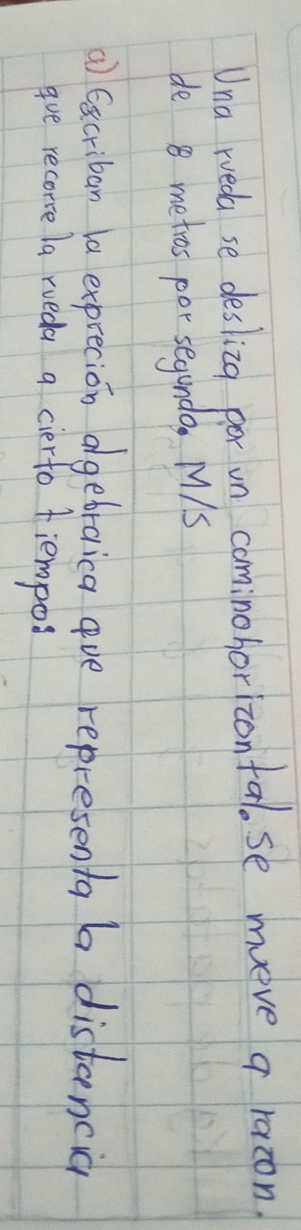 Una rueda se desliza por un caminohorizontal. Se mueve a razon.
de 8 metros por segundo. M/S
a) Escriban la expreción algebraica que representa la distancia
que recorre la rueda a cierto tiempo: